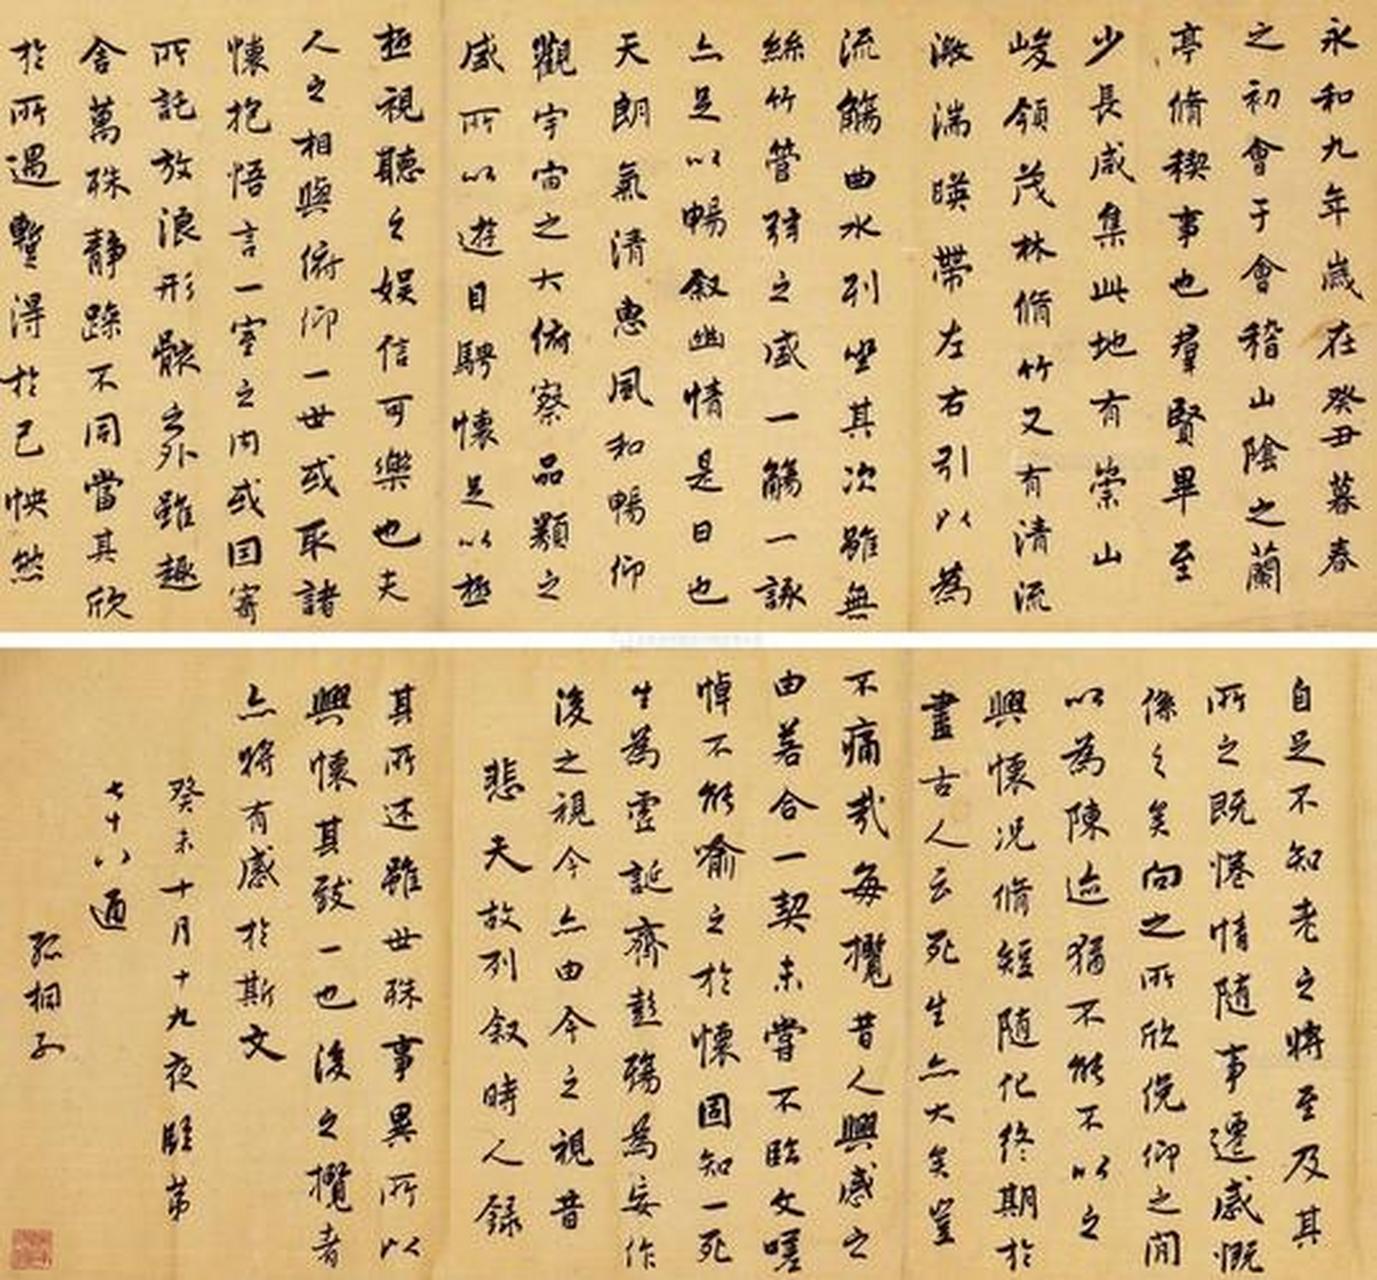 永和九年歲在癸丑暮春
之初會于會稽山陰之蘭
亭脩稧事也羣賢畢至
少長咸集此地有崇山
峻領茂林脩竹又有清流
激湍暎帶左右引以為
流觴曲水列坐其次雖無
絲竹管弦之盛一觴一詠
亦足以暢叙幽情是日也
天朗氣清惠風和暢仰
觀宇宙之大俯察品類之
盛所以遊目騁懷足以極
極視聽之娛信可樂也夫
人之相與俯仰一世或取諸
懷抱悟言一室之內或因寄
所託放浪形骸之外雖趣
舍萬殊靜躁不同當其欣
於所遇暫得於己怏然
自足不知老之將至及其
所之既惓情隨事遷感慨
係之矣向之所欣俛仰之閒
以為陳迹猶不能不以之
興懷況脩短隨化終期於
盡古人云死生亦大矣豈
不痛哉每攬昔人興感之
由若合一契未嘗不臨文嗟
悼不能喻之於懷固知一死
生為虛誕齊彭殤為妄作
後之視今亦由今之視昔
悲夫故列叙時人錄
其所述雖世殊事異所以
興懷其致一也後之攬者
亦將有感於斯文
癸未十月十九夜臨第
七十八通
孤桐子